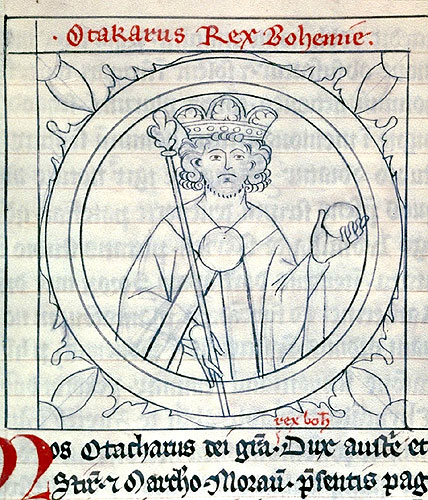 · Otakarus Rex Bohemie ·
rex boh̄
Nos Otacharus dei gr̄a · Dux austr̄ et
Stir̄ ⁊ Marchō · Morau̅ · p̄sentis pag